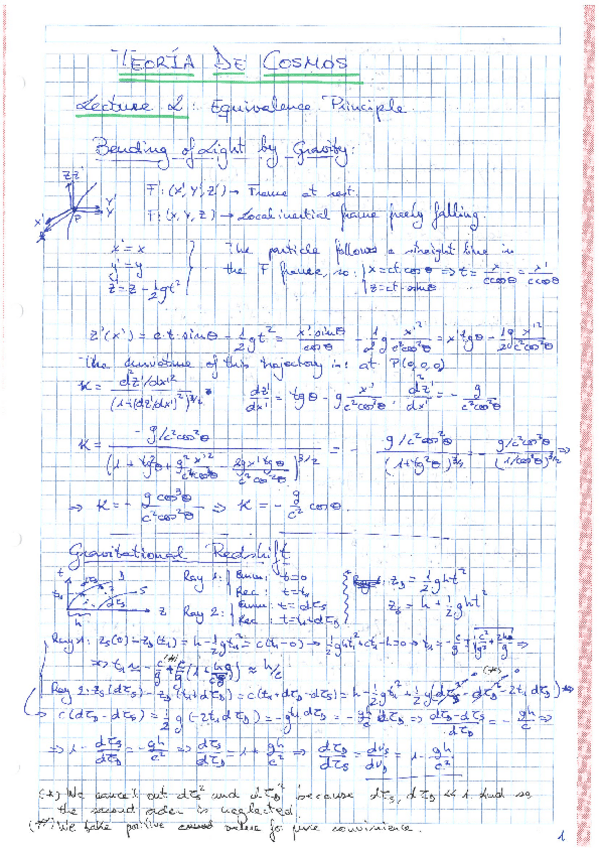 TEORÍA DE COSMOS
Lecture 2: Equivalence Principle
Bending of Light by Gravity:
F': (x', y', z') → Frame at rest.
F: (x, y, z) → Local inertial frame freely falling.
x' = x
y' = y
z' = z - 1/2 gt²
The particle follows a straight line in
the F frame, so: { x = ct·cosθ ⇒ t = x/(c cosθ) = x'/(c cosθ)
z = ct·sinθ
z'(x') = c·t·sinθ - 1/2 gt² = x' sinθ/cosθ - 1/2 g x'²/(c²cos²θ) = x' tgθ - 1/2 g x'²/(c²cos²θ)
The curvature of this trajectory is: at P(0,0,0)
K = (d²z'/dx'²)/(1+(dz'/dx')²)^(3/2) dz'/dx' = tgθ - g x'/(c²cos²θ) d²z'/dx'² = - g/(c²cos²θ)
K = (- g/c²cos²θ)/(1 + tg²θ + g²x'²/(c⁴cos⁴θ) - 2gx' tgθ/(c²cos²θ))^(3/2) = - (g/c²cos²θ)/(1+tg²θ)^(3/2) = - (g/c²cos²θ)/(1/cos²θ)^(3/2) ⇒
⇒ K = - g cos³θ/(c²cos²θ) ⇒ K = - g/c² cosθ
Gravitational Redshift
Ray 1: { Emm: t=0
Rec: t=t₁
Ray 2: { Emm: t=dτs
Rec: t=t₁+dτD
zD = 1/2 gt²
zs = h + 1/2 gt²
Ray 1: zs(0) - zD(t₁) = h - 1/2 gt₁² = c(t₁-0) ⇒ 1/2 gt₁² + ct₁ - h = 0 ⇒ t₁ = -c/g ∓ √(c²/g² + 2h/g) ⇒
≈ h/c
Ray 2: zs(dτs) - zD(t₁+dτD) = c(t₁+dτD-dτs) = h - 1/2 gt₁² + 1/2 g(dτs² - dτD² - 2t₁dτD) ⇒
⇒ c(dτD - dτs) = 1/2 g(-2t₁dτD) = -gt₁dτD = -g h/c dτD ⇒ (dτD-dτs)/dτD = - gh/c² ⇒
⇒ 1 - dτs/dτD = - gh/c² ⇒ dτs/dτD = 1 + gh/c² ⇒ dτD/dτs = dνs/dνD = 1 - gh/c²
(*) We cancel out dτs² and dτD² because dτs, dτD ≪ 1 and so
the second order is neglected
(#) We take positive value for pure convinience.
1